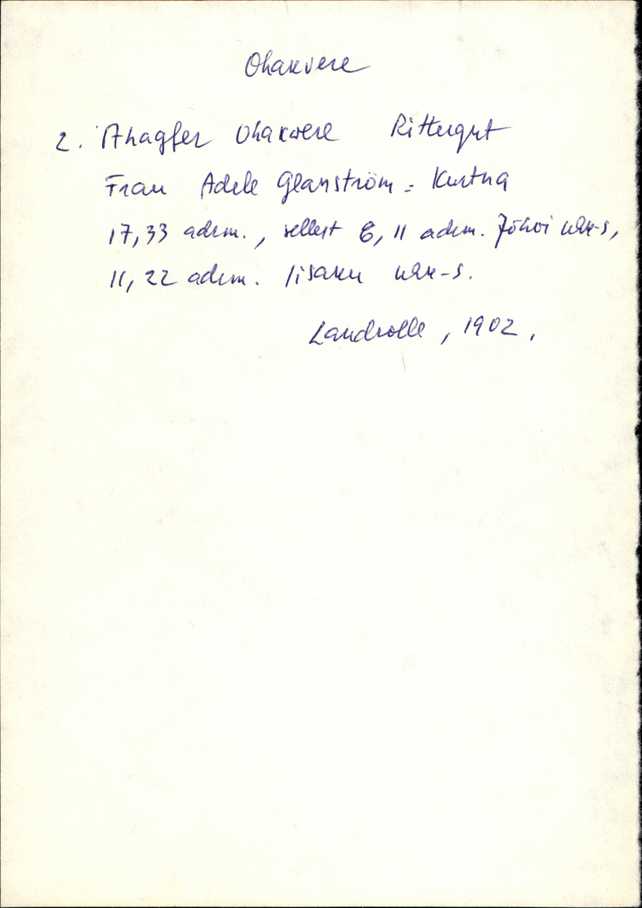 Ohakvere
2. Ahagfer Ohakvere Rittergut
Frau Adele Glanström = Kurtna
17,33 adrm., sellest 6, 11 adrm. Jõhvi
11, 22 adrm. Iisaku
Landrolle, 1902.